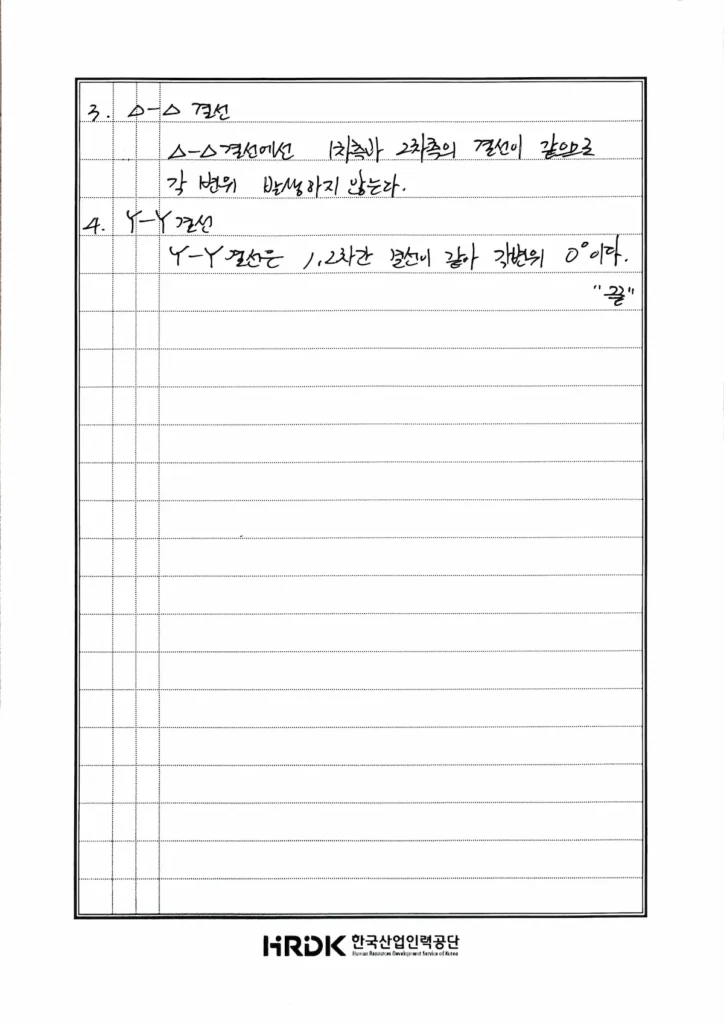 3. △-△ 결선
△-△ 결선에선 1차측과 2차측의 결선이 같으므로
각 변위 발생하지 않는다.
4. Y-Y 결선
Y-Y 결선은 1,2차간 결선이 같아 각변위 0°이다.
"끝"
HRDK 한국산업인력공단
Human Resources Development Service of Korea